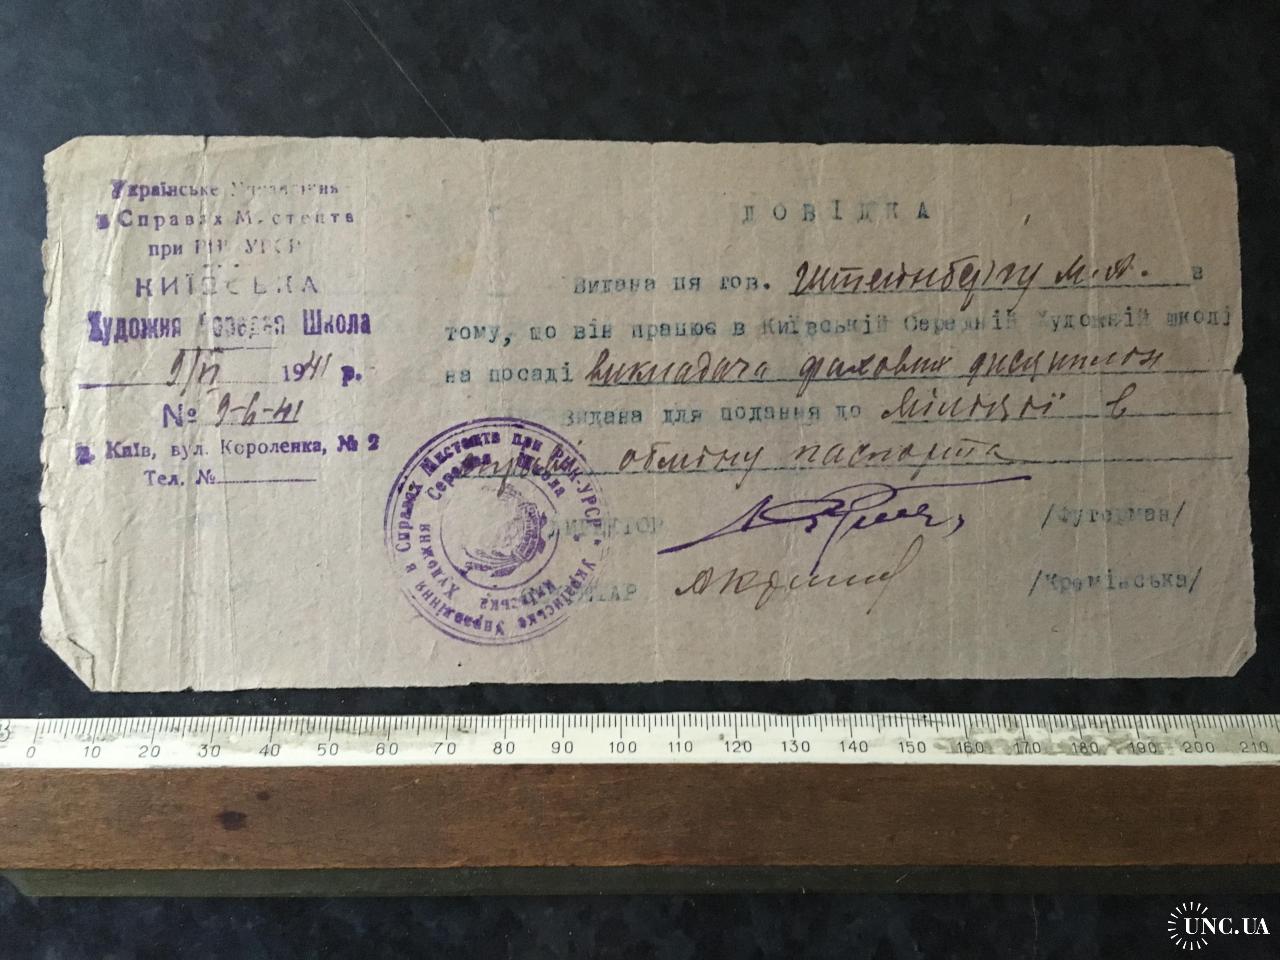 Українське Управління
в Справах Мистецтв
при РНК УРСР
КИЇВСЬКА
Художня Середня Школа
9/VI 1941 р.
№ 9-6-41
м. Київ, вул. Короленка, № 2
Тел. №
ДОВІДКА
Видана ця тов. Штейнбергу М.Я. в
тому, що він працює в Київській Середній Художній школі
на посаді викладача фахових дисциплін
Видана для подання до міліції в
справі обміну паспорта
ДИРЕКТОР /Футерман/
/Кремінська/
Українське Управління в Справах Мистецтв при РНК-УРСР
Київська Художня Середня Школа
0 10 20 30 40 50 60 70 80 90 100 110 120 130 140 150 160 170 180 190 200 210
UNC.UA